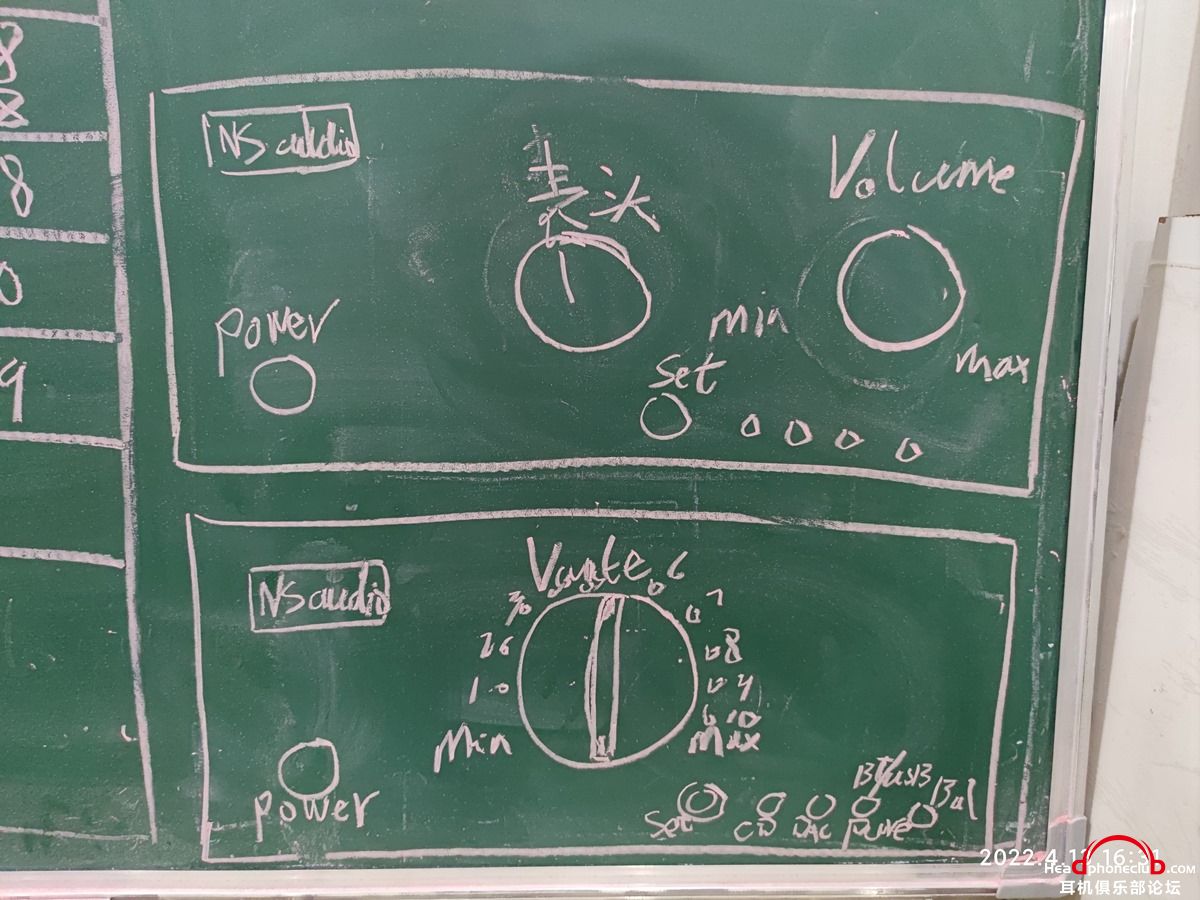 8
8
8
0
9
NS audio
表头
Volume
power
min
max
Set
NS audio
6
3
7
2
8
1
9
10
Min
max
power
BT/USB
Bal
Set
CD
DAC
Pure
2022.4.1
16:31
Headphoneclub.com
耳机俱乐部论坛